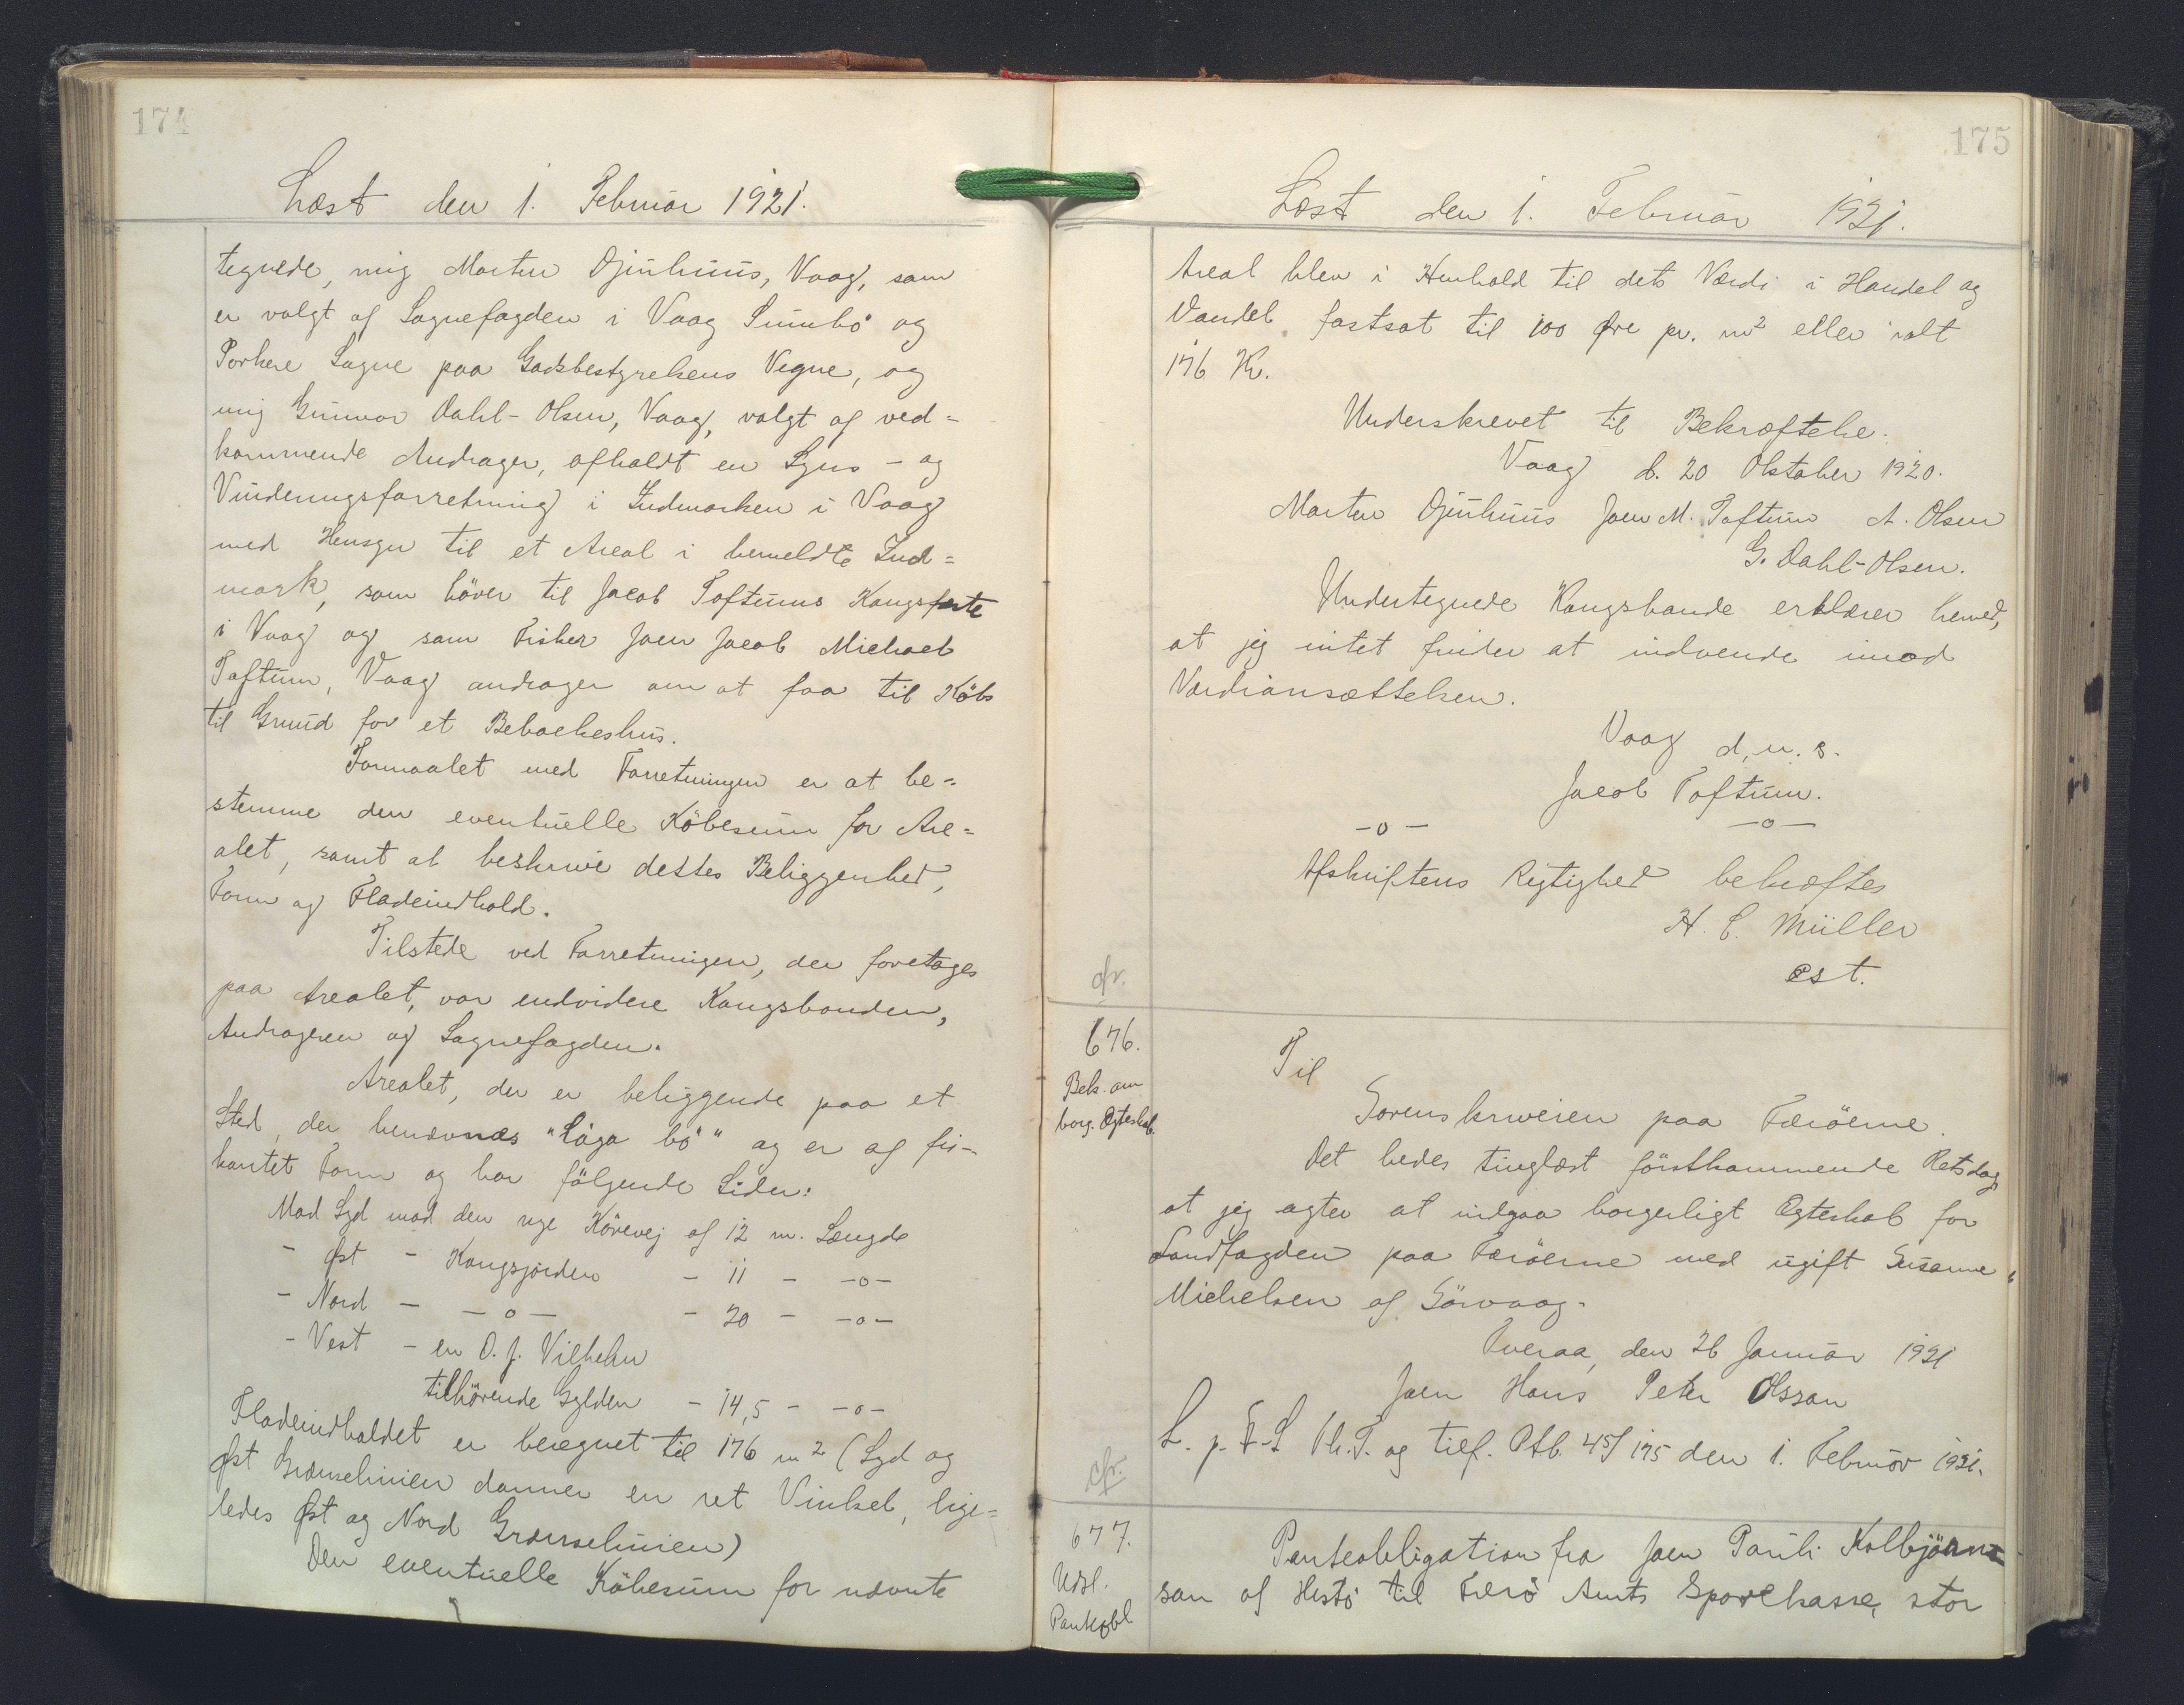 174
Læst den 1. Februar 1921.
tegnede, mig Morten Djurhuus, Vaag, som
er valgt af Sognefogden i Vaag Sumbö og
Porkere Sogne paa Godsbestyrelsens Vegne, og
mig Gunnar Dahl-Olsen, Vaag, valgt af ved=
kommende Andrager, afholdt en Syns- og
Vurderingsforretning i Indmarken i Vaag
med Hensyn til et Areal i bemeldte Ind=
mark, som hörer til Jacob Toftums Kongsfæste
i Vaag og som Fisker Joen Jacob Michael
Toftum, Vaag andrager om at faa til Købs
til Grund for et Beboelseshus.
Formaalet med Forretningen er at be=
stemme den eventuelle Köbesum for Are=
alet, samt at beskrive dettes Beliggenhed,
Form og Fladeindhold.
Tilstede ved Forretningen, der foretoges
paa Arealet, var endvidere Kongsbonden,
Andrageren og Sognefogden.
Arealet, der er beliggende paa et
Sted, der benævnes "Lága bö" og er af fir-
kantet Form og har fölgende Sider:
Mod Syd mod den nye Körevej af 12 m. Længde
- Øst - Kongsjorden - 11 - -o-
- Nord - -o- - 20 - -o-
- Vest - en O. J. Vilhelm
tilhörende Gylden - 14,5 - -o-
Fladeindholdet er beregnet til 176 m² (Syd og
Øst Grænselinien danner en ret Vinkel, lige=
ledes Øst og Nord Grænselinien)
Den eventuelle Köbesum for nævnte
175
Læst den 1. Februar 1921.
Areal blev i Henhold til dets Værdi i Handel og
Vandel fastsat til 100 Øre pr. m² eller ialt
176 Kr.
Underskrevet til Bekræftelse.
Vaag d. 20 Oktober 1920.
Morten Djurhuus Joen M. Toftum A. Olsen
G. Dahl-Olsen.
Undertegnede Kongsbonde erklærer herved,
at jeg intet finder at indvende imod
Værdiansættelsen.
Vaag d. u. s.
Jacob Toftum.
-o- -o-
Afskriftens Rigtighed bekræftes
H. C. Müller
cst.
cfr.
676.
Bek. om
borg. Ægteskab.
Til
Sorenskriveren paa Færöerne.
Det bedes tinglæst förstkommende Retsdag
at jeg agter at indgaa borgerligt Ægteskab for
Landfogden paa Færöerne med ugift Susanne
Michelsen af Sörvaag.
Tveraa, den 26 Januar 1921
Joen Hans Peter Olsson
L. p. F-S Th. T. og tilf. Ptb. 45/175 den 1. Februar 1921.
cfr.
677.
Udsl.
Pantobl
Panteobligation fra Joen Pauli Kolbjörns
son af Hestö til Færö Amts Sparekasse, stor